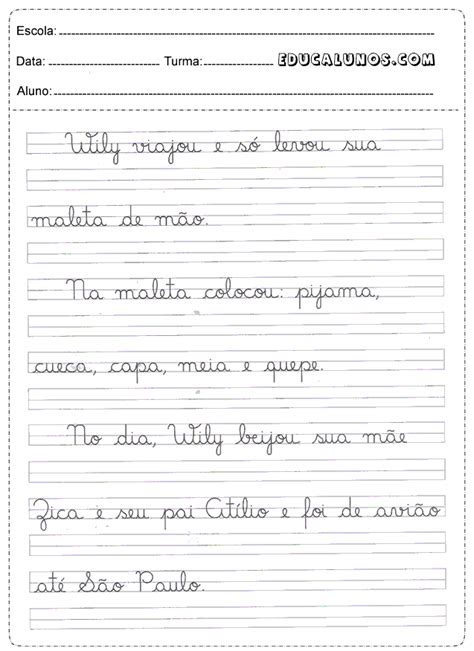 Escola:
Data: Turma: EDUCALUNOS.COM
Aluno:
Wily viajou e só levou sua
maleta de mão.
Na maleta colocou: pijama,
cueca, capa, meia e quepe.
No dia, Wily beijou sua mãe
Zica e seu pai Atílio e foi de avião
até São Paulo.